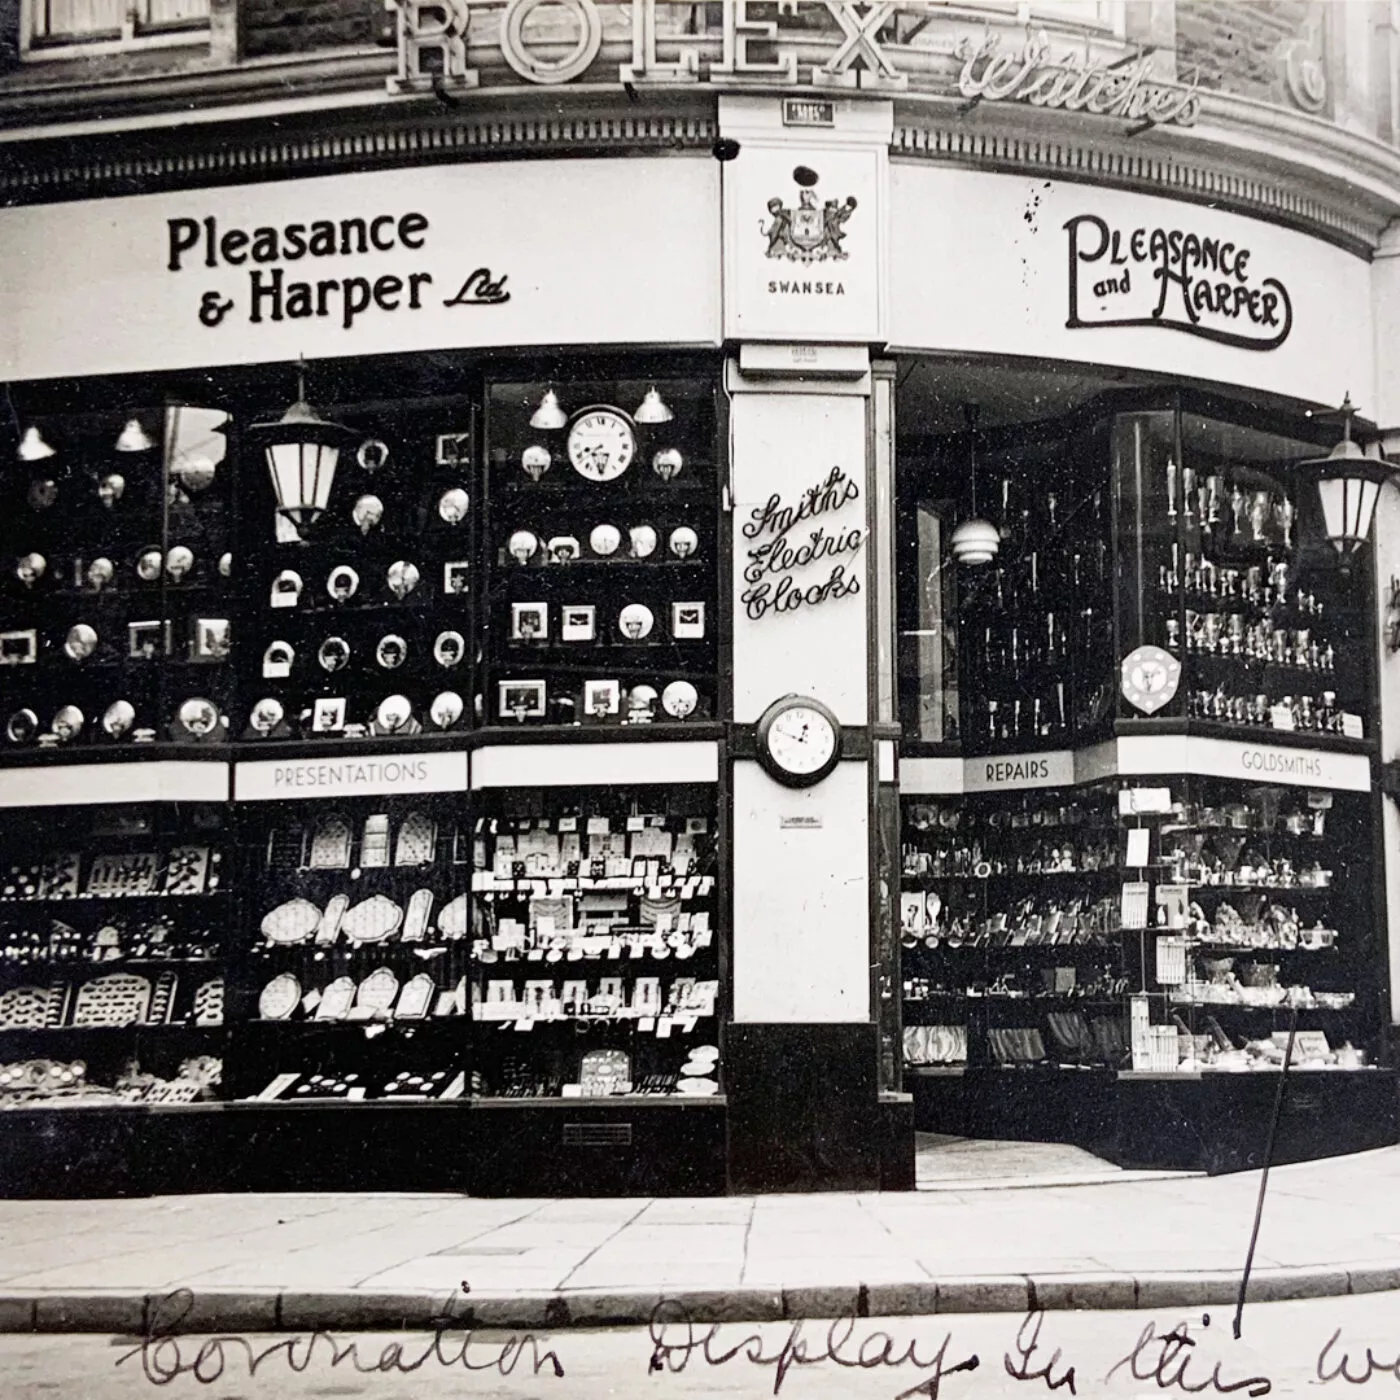 ROLEX
Watches
Pleasance
& Harper Ltd
SWANSEA
PLEASANCE
and HARPER
Smith's
Electric
Clocks
PRESENTATIONS
REPAIRS
GOLDSMITHS
Coronation Display. In this